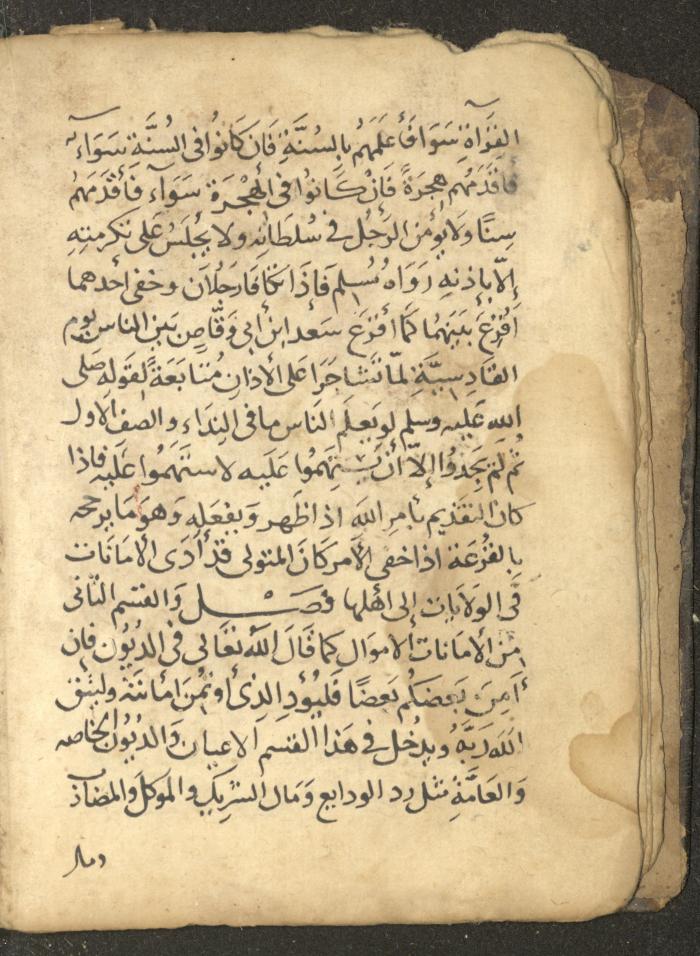 القراة سَوَآ فَأعلَمهُم بالسُنَّةِ فَان كَانوُا فى السُنَّةِ سَوَآء
فَاقدَمهُم هجرَةً فَإن كَانوُا فى الهِجْرَة سَوَآء فَأقدَمهُم
سِنًا وَلَا يَؤُمن الرَجُل فى سُلطانِهِ ولا يجْلسَ عَلى تكرمتِهِ
إلّا بإذنهِ رَوَاه مُسْلِم فَإذَا تكافَا رَجُلَان وخفى أحدهما
اقُرعَ بَينَهُما كَما أقرَع سَعد ابن ابى وَقّاصٍ بَين الناس يوم
القَادِسِيَّةِ لمّا تَشاجَرَوا عَلى الأذانِ مُتابَعَةً لقَوله صَلى
الله عَليْهِ وسلم لو يَعلَم الناس ما فى النِدَاء والصف الاول
ثُم لمْ يَجدُوُا إلّا أنْ يَسْتهِمُوا عَليه لاستَهَمُوا عَليْه فاذا
كانَ التقدِيم بأمرِ الله اذ اظَهر وَبفعَلِهِ وَهوَ مَا يرجحه
بِالقُرعَة اذا خفى الأمر كَانَ المتولى قدْ أدَى الأمَانَات
فى الوَلَايَات إلى أهْلها فصَــل وَالقسْم الثانى
مِن الأمَانَات الامَوال كما قَال الله تَعَالى فى الدُيُون فإن
أمِنَ بَعضكُم بَعضًا فَليُؤدِ الذِى أوتُمُنَ امَانتَهْ وليَتق
الله رَبَهُ وَيدُخل فى هَذا القِسم الاعيان وَالديُون الخاصه
وَالعَامَّةِ مثل رد الودايع وَمَال الشرِيكِ والموكل والمضارب
ومال